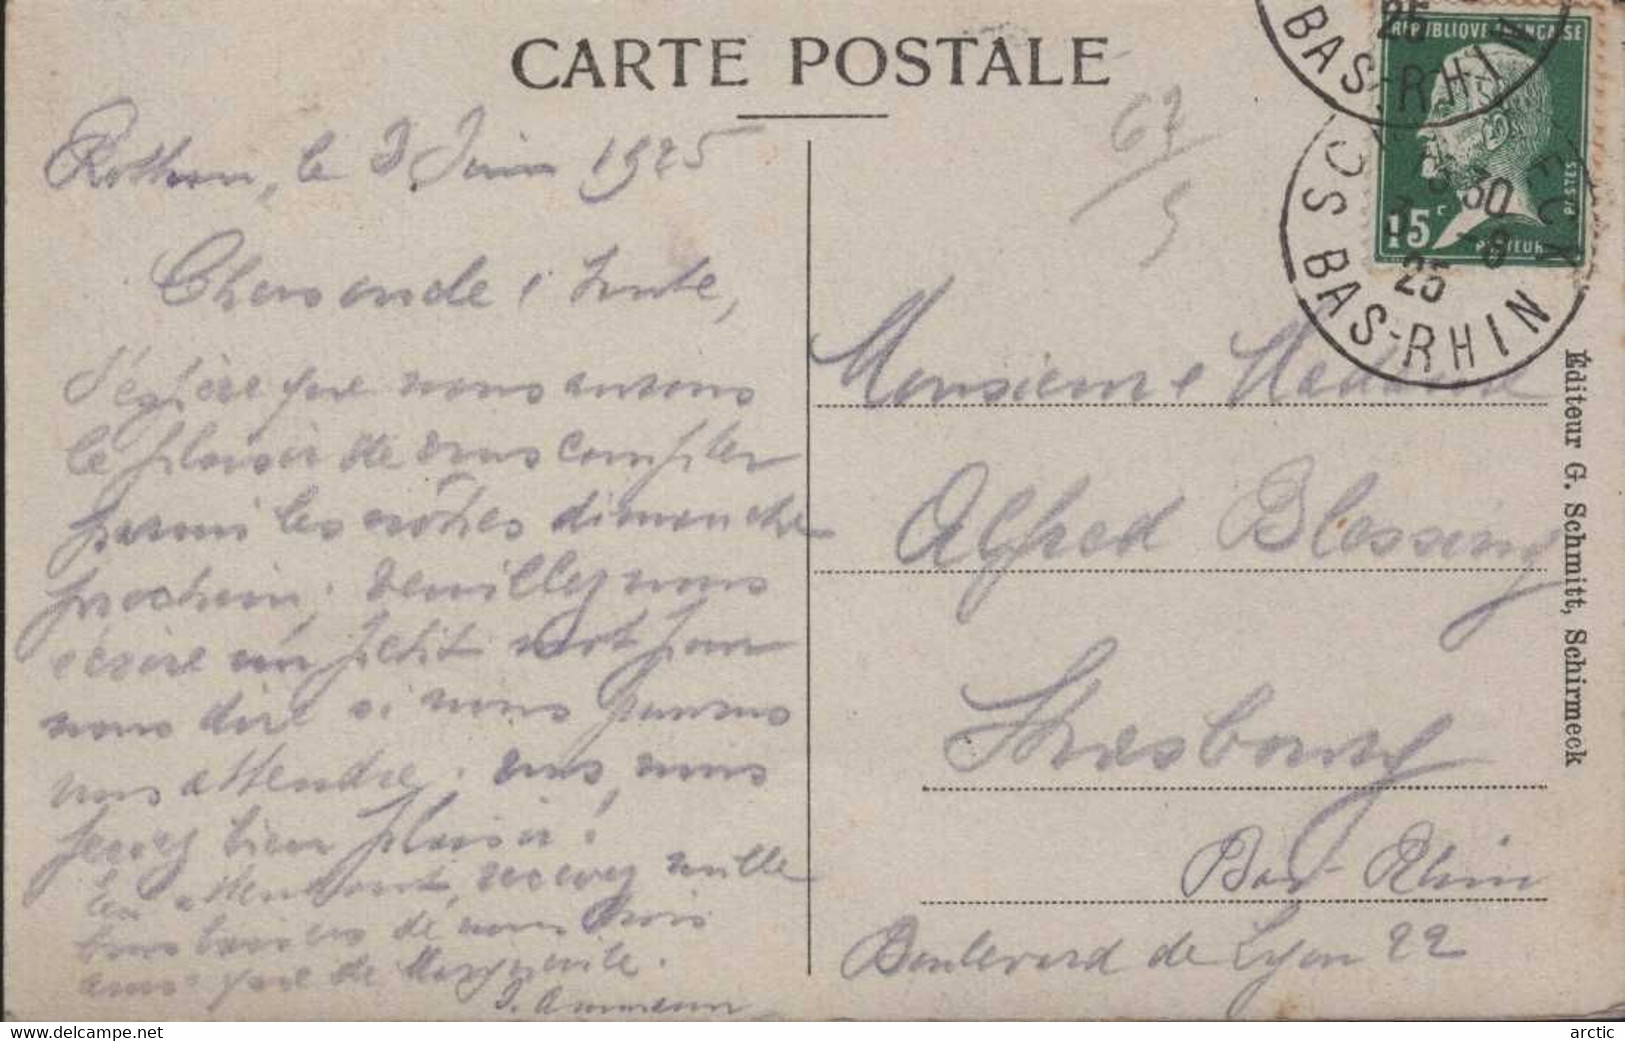 CARTE POSTALE
Rothau, le 3 Juin 1925
67
5
Chers oncle & tante,
J'espère que nous aurons
le plaisir de vous compter
parmi les nôtres dimanche
prochain; veuillez nous
écrire un petit mot pour
nous dire si nous pouvons
vous attendre. vous, nous
ferez bien plaisir!
En attendant, recevez mille
bons baisers de nous trois
ainsi que de Marguerite.
J. Ammann
Monsieur & Madame
Alfred Blessing
Strasbourg
Bas-Rhin
Boulevard de Lyon 22
Éditeur G. Schmitt, Schirmeck
RÉPUBLIQUE FRANÇAISE
POSTES
15c
PASTEUR
25
BAS-RHIN
30
3 -6
25
BAS-RHIN
https://www.delcampe.net
arctic